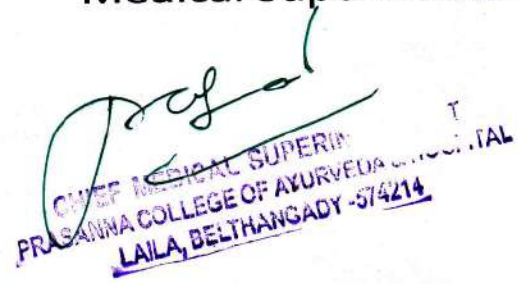 CHIEF MEDICAL SUPERIN T
PRASANNA COLLEGE OF AYURVEDA & HOSPITAL
LAILA, BELTHANGADY -574214